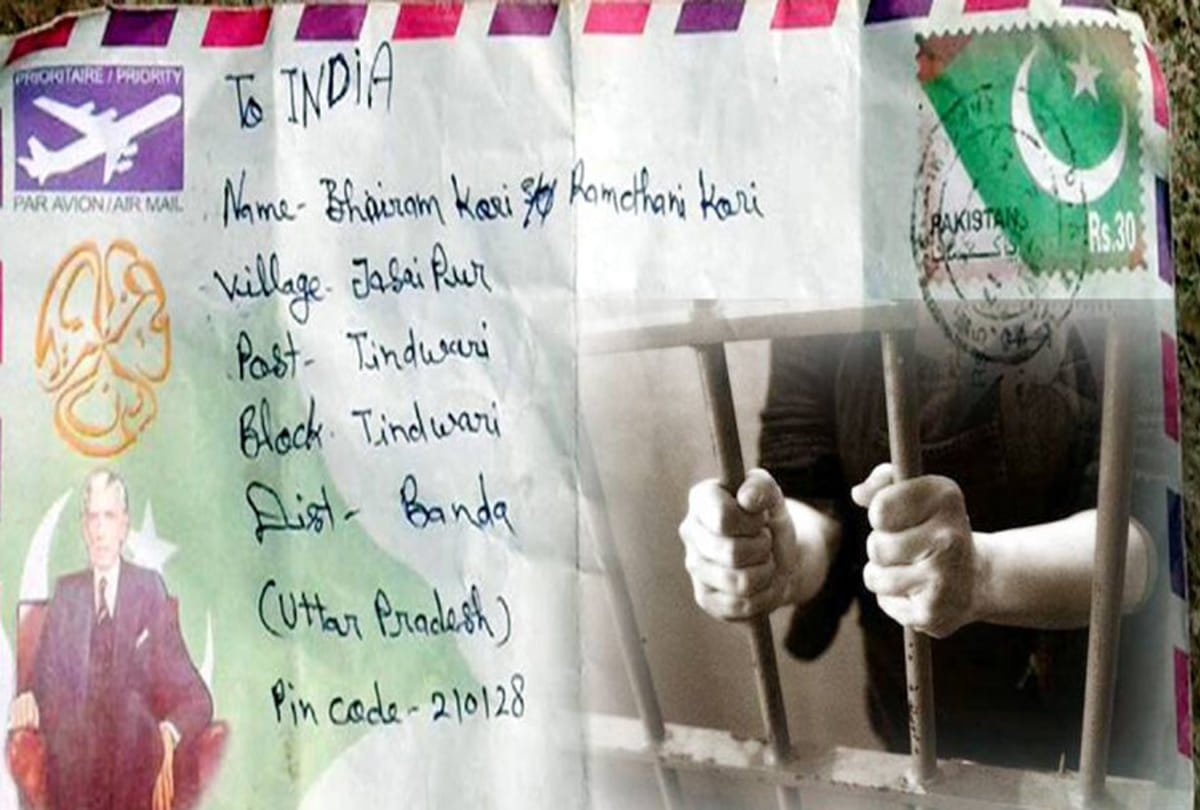 PRIORITAIRE / PRIORITY
PAR AVION/AIR MAIL
To INDIA
Name- Bhairam Kori S/o Ramdhani Kori
Village- Jasai Pur
Post- Tindwari
Block- Tindwari
Dist- Banda
(Uttar Pradesh)
Pin code- 210128
PAKISTAN
Rs.30